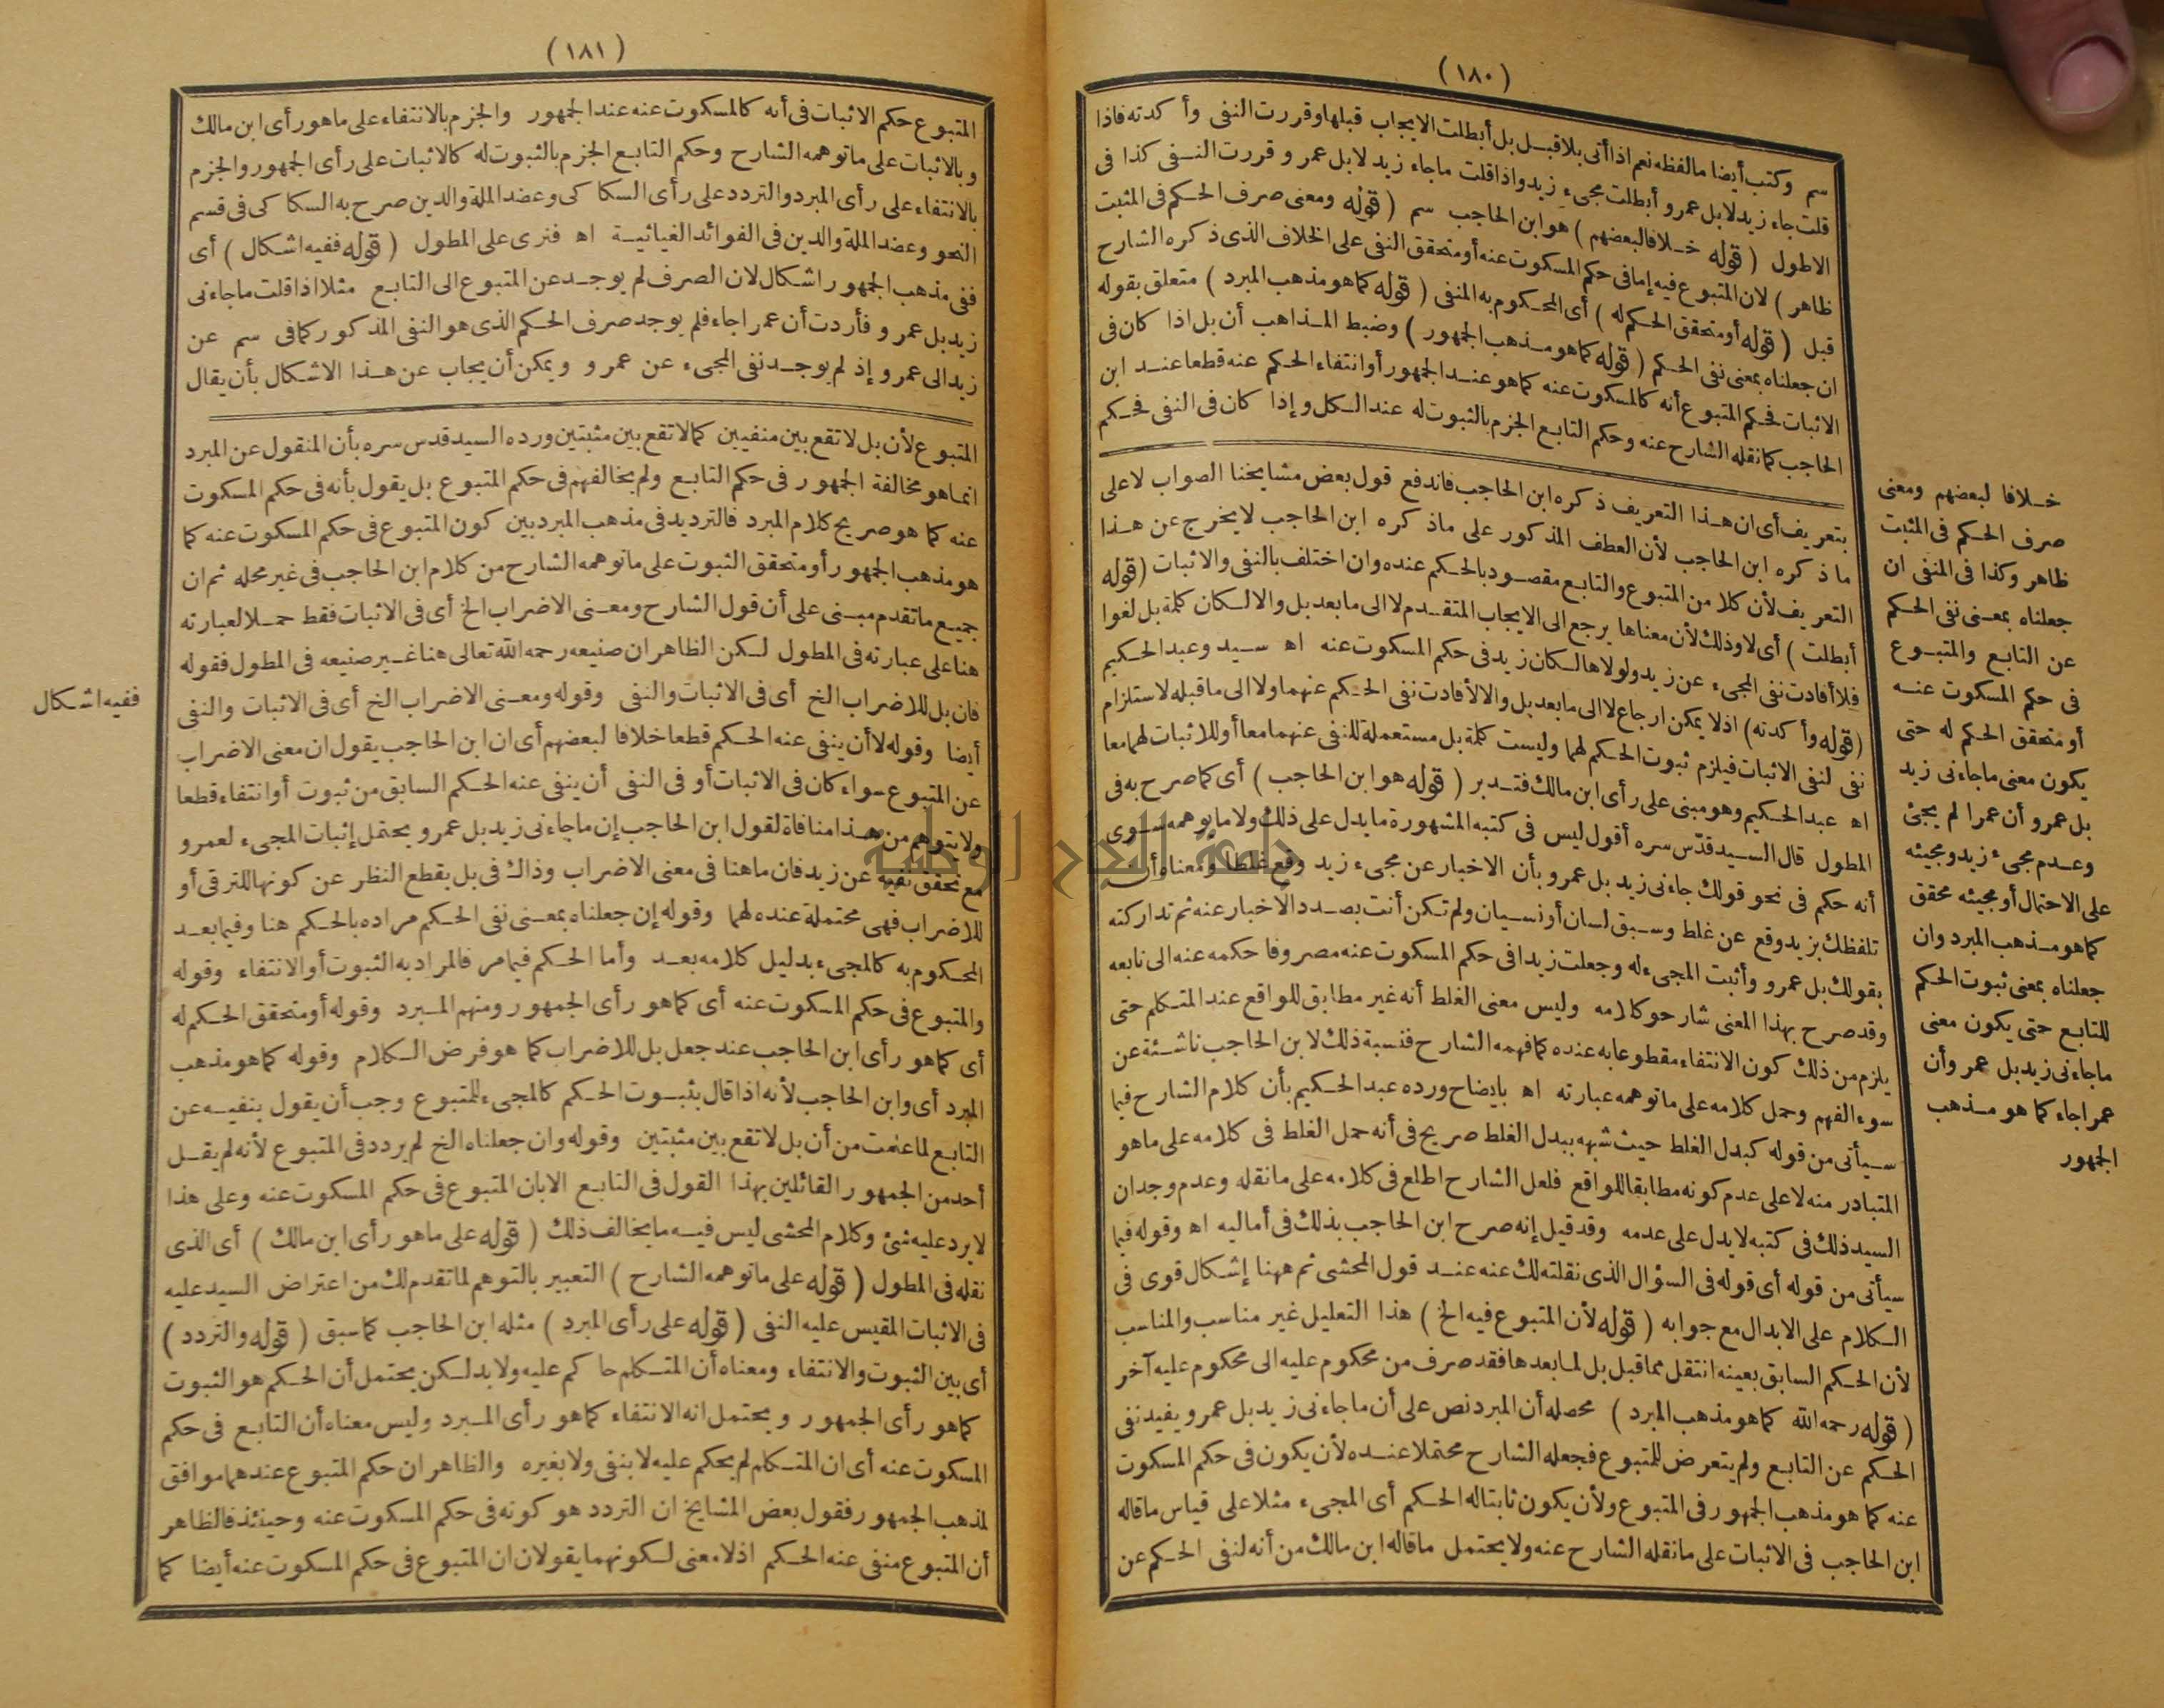 (١٨٠)
سم وكتب أيضا مالفظه نعم اذا أتى بلا قبل بل أبطلت الايجاب قبلها وقررت النفى وأكدته فاذا
قلت جاء زيد لا بل عمرو أبطلت مجىء زيد واذا قلت ماجاء زيد لا بل عمرو قررت النفى كذا فى
الاطول (قوله خلافا لبعضهم) هو ابن الحاجب سم (قوله ومعنى صرف الحكم فى المثبت
ظاهر) لان المتبوع فيه إما فى حكم المسكوت عنه أو متحقق النفى على الخلاف الذى ذكره الشارح
قبل (قوله أو متحقق الحكم له) أى المحكوم به المنفى (قوله كما هو مذهب المبرد) متعلق بقوله
ان جعلناه بمعنى نفى الحكم (قوله كما هو مذهب الجمهور) وضبط المذاهب أن بل اذا كان فى
الاثبات فحكم المتبوع أنه كالمسكوت عنه كما هو عند الجمهور أو انتفاء الحكم عنه قطعا عند ابن
الحاجب كما نقله الشارح عنه وحكم التابع الجزم بالثبوت له عند الكل وإذا كان فى النفى فحكم
بتعريف أى ان هذا التعريف ذكره ابن الحاجب فاندفع قول بعض مشايخنا الصواب لا على
ما ذكره ابن الحاجب لأن العطف المذكور على ماذكره ابن الحاجب لا يخرج عن هذا
التعريف لأن كلا من المتبوع والتابع مقصود بالحكم عنده وان اختلف بالنفى والاثبات (قوله
أبطلت) أى لا وذلك لأن معناها يرجع الى الايجاب المتقدم لا الى ما بعد بل والا لكان كلمة بل لغوا
فلا أفادت نفى المجىء عن زيد ولولاها لكان زيد فى حكم المسكوت عنه اه سيد وعبد الحكيم
(قوله وأكدته) اذ لا يمكن ارجاع لا الى ما بعد بل والا لأفادت نفى الحكم عنهما ولا الى ما قبله لاستلزام
نفى لنفى الاثبات فيلزم ثبوت الحكم لهما وليست كلمة بل مستعملة للنفى عنهما معا أو للاثبات لهما معا
اه عبد الحكيم وهو مبنى على رأى ابن مالك فتدبر (قوله هو ابن الحاجب) أى كما صرح به فى
المطول قال السيد قدّس سره أقول ليس فى كتبه المشهورة ما يدل على ذلك ولا ما يوهمه سوى
أنه حكم فى نحو قولك جاءنى زيد بل عمرو بأن الاخبار عن مجىء زيد وقع غلطا ومعناه أن
تلفظك بزيد وقع عن غلط وسبق لسان أو نسيان ولم تكن أنت بصدد الاخبار عنه ثم تداركته
بقولك بل عمرو وأثبت المجىء له وجعلت زيدا فى حكم المسكوت عنه مصروفا حكمه عنه الى تابعه
وقد صرح بهذا المعنى شارحو كلامه وليس معنى الغلط أنه غير مطابق للواقع عند المتكلم حتى
يلزم من ذلك كون الانتفاء مقطوعا به عنده كما فهمه الشارح فنسبة ذلك لابن الحاجب ناشئة عن
سوء الفهم وحمل كلامه على ما توهمه عبارته اه بايضاح ورده عبد الحكيم بأن كلام الشارح فيما
سيأتى من قوله كبدل الغلط حيث شبهه ببدل الغلط صريح فى أنه حمل الغلط فى كلامه على ما هو
المتبادر منه لا على عدم كونه مطابقا للواقع فلعل الشارح اطلع فى كلامه على ما نقله وعدم وجدان
السيد ذلك فى كتبه لا يدل على عدمه وقد قيل إنه صرح ابن الحاجب بذلك فى أماليه اه وقوله فيما
سيأتى من قوله أى قوله فى السؤال الذى نقلته لك عنه عند قول المحشى ثم ههنا إشكال قوى فى
الكلام على الابدال مع جوابه (قوله لأن المتبوع فيه الخ) هذا التعليل غير مناسب والمناسب
لأن الحكم السابق بعينه انتقل مما قبل بل لما بعدها فقد صرف من محكوم عليه الى محكوم عليه آخر
(قوله رحمه الله كما هو مذهب المبرد) محصله أن المبرد نص على أن ماجاءنى زيد بل عمرو يفيد نفى
الحكم عن التابع ولم يتعرض للمتبوع فجعله الشارح محتملا عنده لأن يكون فى حكم المسكوت
عنه كما هو مذهب الجمهور فى المتبوع ولأن يكون ثابتا له الحكم أى المجىء مثلا على قياس ما قاله
ابن الحاجب فى الاثبات على ما نقله الشارح عنه ولا يحتمل ما قاله ابن مالك من أنه لنفى الحكم عن
خلافا لبعضهم ومعنى
صرف الحكم فى المثبت
ظاهر وكذا فى المنفى ان
جعلناه بمعنى نفى الحكم
عن التابع والمتبوع
فى حكم المسكوت عنه
أو متحقق الحكم له حتى
يكون معنى ماجاءنى زيد
بل عمرو أن عمرا لم يجئ
وعدم مجىء زيد ومجيئه
على الاحتمال أو مجيئه محقق
كما هو مذهب المبرد وان
جعلناه بمعنى ثبوت الحكم
للتابع حتى يكون معنى
ماجاءنى زيد بل عمرو أن
عمرا جاء كما هو مذهب
الجمهور
(١٨١)
المتبوع حكم الاثبات فى أنه كالمسكوت عنه عند الجمهور والجزم بالانتفاء على ما هو رأى ابن مالك
وبالاثبات على ما توهمه الشارح وحكم التابع الجزم بالثبوت له كالاثبات على رأى الجمهور والجزم
بالانتفاء على رأى المبرد والتردد على رأى السكاكى وعضد الملة والدين صرح به السكاكى فى قسم
النحو وعضد الملة والدين فى الفوائد الغياثية اه فنرى على المطول (قوله ففيه اشكال) أى
ففى مذهب الجمهور اشكال لان الصرف لم يوجد عن المتبوع الى التابع مثلا اذا قلت ماجاءنى
زيد بل عمرو فأردت أن عمرا جاء فلم يوجد صرف الحكم الذى هو النفى المذكور كما فى سم عن
زيد الى عمرو إذ لم يوجد نفى المجىء عن عمرو ويمكن أن يجاب عن هذا الاشكال بأن يقال
المتبوع لأن بل لا تقع بين منفيين كما لا تقع بين مثبتين ورده السيد قدس سره بأن المنقول عن المبرد
انما هو مخالفة الجمهور فى حكم التابع ولم يخالفهم فى حكم المتبوع بل يقول بأنه فى حكم المسكوت
عنه كما هو صريح كلام المبرد فالترديد فى مذهب المبرد بين كون المتبوع فى حكم المسكوت عنه كما
هو مذهب الجمهور أو متحقق الثبوت على ما توهمه الشارح من كلام ابن الحاجب فى غير محله ثم ان
جميع ما تقدم مبنى على أن قول الشارح ومعنى الاضراب الخ أى فى الاثبات فقط حملا لعبارته
هنا على عبارته فى المطول لكن الظاهر ان صنيعه رحمه الله تعالى هنا غير صنيعه فى المطول فقوله
فان بل للاضراب الخ أى فى الاثبات والنفى وقوله ومعنى الاضراب الخ أى فى الاثبات والنفى
أيضا وقوله لا أن ينفى عنه الحكم قطعا خلافا لبعضهم أى ان ابن الحاجب يقول ان معنى الاضراب
عن المتبوع سواء كان فى الاثبات أو فى النفى أن ينفى عنه الحكم السابق من ثبوت أو انتفاء قطعا
ولا يتوهم من هذا منافاة لقول ابن الحاجب إن ماجاءنى زيد بل عمرو يحتمل إثبات المجىء لعمرو
مع تحقق نفيه عن زيد فان ما هنا فى معنى الاضراب وذاك فى بل بقطع النظر عن كونها للترقى أو
للاضراب فهى محتملة عنده لهما وقوله إن جعلناه بمعنى نفى الحكم مراده بالحكم هنا وفيما بعد
المحكوم به كالمجىء بدليل كلامه بعد وأما الحكم فيما مر فالمراد به الثبوت أو الانتفاء وقوله
والمتبوع فى حكم المسكوت عنه أى كما هو رأى الجمهور ومنهم المبرد وقوله أو متحقق الحكم له
أى كما هو رأى ابن الحاجب عند جعل بل للاضراب كما هو فرض الكلام وقوله كما هو مذهب
المبرد أى وابن الحاجب لأنه اذا قال بثبوت الحكم كالمجىء للمتبوع وجب أن يقول بنفيه عن
التابع لما علمت من أن بل لا تقع بين مثبتين وقوله وان جعلناه الخ لم يردد فى المتبوع لأنه لم يقل
أحد من الجمهور القائلين بهذا القول فى التابع الا بان المتبوع فى حكم المسكوت عنه وعلى هذا
لا يرد عليه شئ وكلام المحشى ليس فيه ما يخالف ذلك (قوله على ما هو رأى ابن مالك) أى الذى
نقله فى المطول (قوله على ما توهمه الشارح) التعبير بالتوهم لما تقدم لك من اعتراض السيد عليه
فى الاثبات المقيس عليه النفى (قوله على رأى المبرد) مثله ابن الحاجب كما سبق (قوله والتردد)
أى بين الثبوت والانتفاء ومعناه أن المتكلم حاكم عليه ولا بد لكن يحتمل أن الحكم هو الثبوت
كما هو رأى الجمهور ويحتمل انه الانتفاء كما هو رأى المبرد وليس معناه أن التابع فى حكم
المسكوت عنه أى ان المتكلم لم يحكم عليه لا بنفى ولا بغيره والظاهر ان حكم المتبوع عندهما موافق
لمذهب الجمهور فقول بعض المشايخ ان التردد هو كونه فى حكم المسكوت عنه وحينئذ فالظاهر
أن المتبوع منفى عنه الحكم اذ لا معنى لكونهما يقولان ان المتبوع فى حكم المسكوت عنه أيضا كما
ففيه اشكال
جامعة النجاح الوطنية